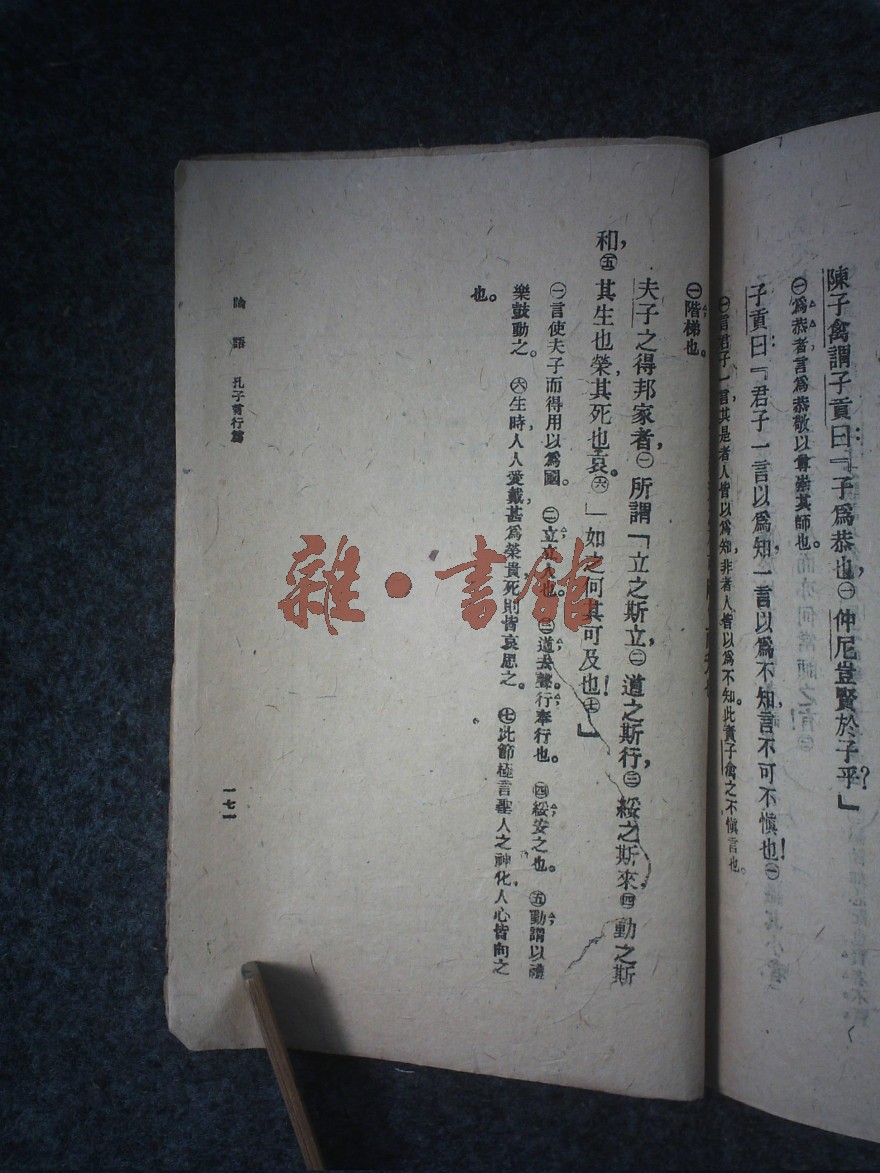 陳子禽謂子貢曰：『子爲恭也，㊀仲尼豈賢於子乎？』
㊀爲恭者言爲恭敬以尊崇其師也。
子貢曰：『君子一言以爲知，一言以爲不知，言不可不愼也！㊀
㊀言君子一言，其是者人皆以爲知，非者人皆以爲不知。此責子禽之不愼言也。
㊀階，梯也。
夫子之得邦家者，㊀所謂『立之斯立，㊁道之斯行，㊂綏之斯來，㊃動之斯
和，㊄其生也榮，其死也哀。㊅』如之何其可及也！㊆』
㊀言使夫子而得用以爲國。㊁立，立人也。㊂道去聲。行，奉行也。㊃綏，安之也。㊄動，謂以禮
樂鼓動之。㊅生時人人愛戴，甚爲榮貴，死則皆哀思之。㊆此節極言聖人之神化，人心皆向之
也。
論語 孔子言行篇
一七一
雜·書館